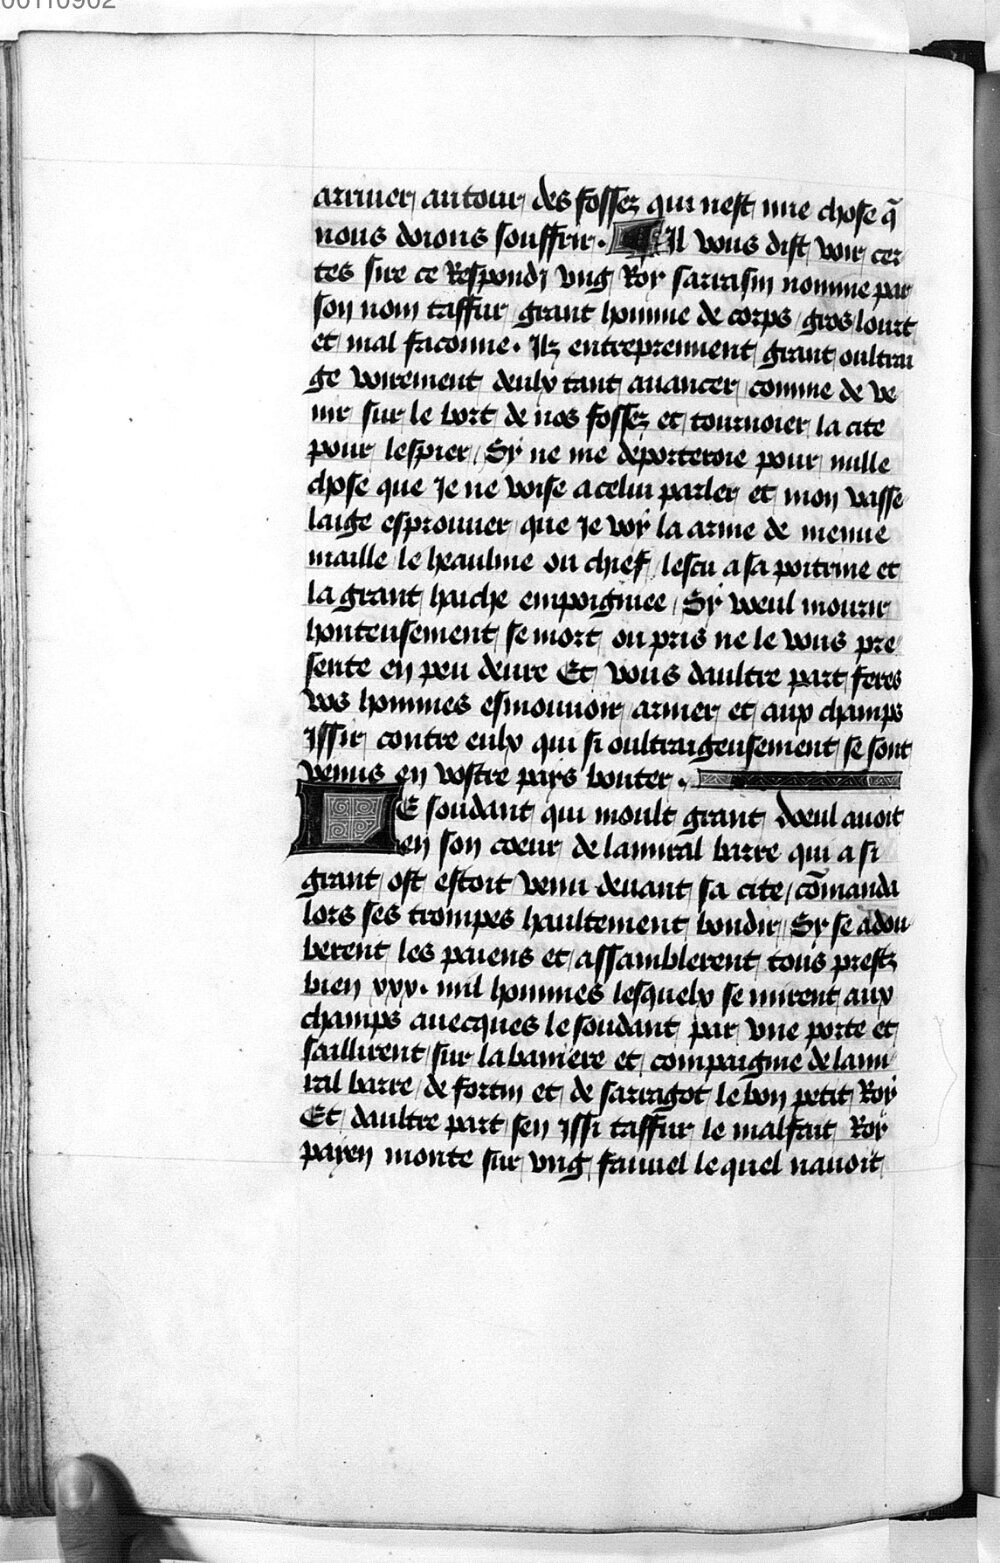 00110902
arriuer autour des fossez qui nest mie chose q̃
nous doions souffrir. Il vous dist voir cer
tes sire ce Respondi vng Roy sarrasin nomme par
son nom taffur grant homme de corps / gros lourt
et mal faconne. Ilz entreprennent grant oultrai
ge voirement deulx tant auancer comme de ve
nir sur le bort de nos fossez et tournoier la cite
pour lespier / Sy ne me deporteroie pour nulle
chose que Je ne voise a celui parler et mon vasse
laige esprouuer que Je voy la arme de menue
maille le heaulme ou chief / lescu a sa poitrine et
la grant haiche empoigniee / Sy voeul mourir
honteusement se mort ou pris ne le vous pre
sente en peu deure Et vous daultre part feres
vos hommes esmouuoir armer et aux champs
Issir contre eulx qui si oultrageusement se sont
venus en vostre pays bouter.
LE soudant qui moult grant doeul auoit
en son coeur de lamiral barre qui a si
grant ost estoit venu deuant sa cite / cõmanda
lors ses trompes haultement bondir / Sy se adou
berent les paiens et assamblerent tous prestz
bien xxx. mil hommes lesquelx se mirent aux
champs auecques le soudant par vne porte et
saillirent sur la baniere et compaignie de lami
ral barre / de fortin et de sarragot le bon petit Roy
Et daultre part sen Issi taffur le malfait Roy
payen monte sur vng fauuel lequel nauoit